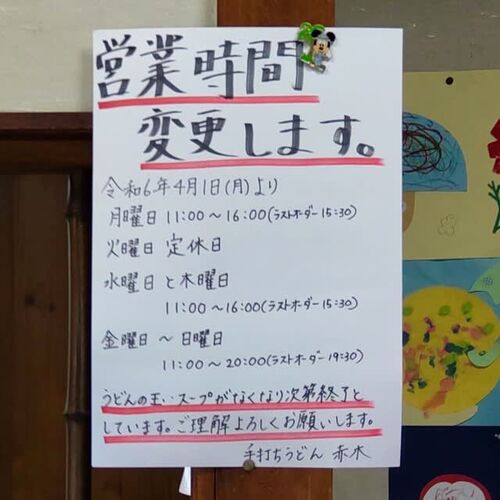 営業時間
変更します。
令和6年4月1日(月)より
月曜日 11:00～16:00(ラストオーダー15:30)
火曜日 定休日
水曜日 と 木曜日
11:00～16:00(ラストオーダー15:30)
金曜日 ～ 日曜日
11:00～20:00(ラストオーダー19:30)
うどんの玉・スープがなくなり次第終了と
しています。ご理解よろしくお願いします。
手打ちうどん 赤木